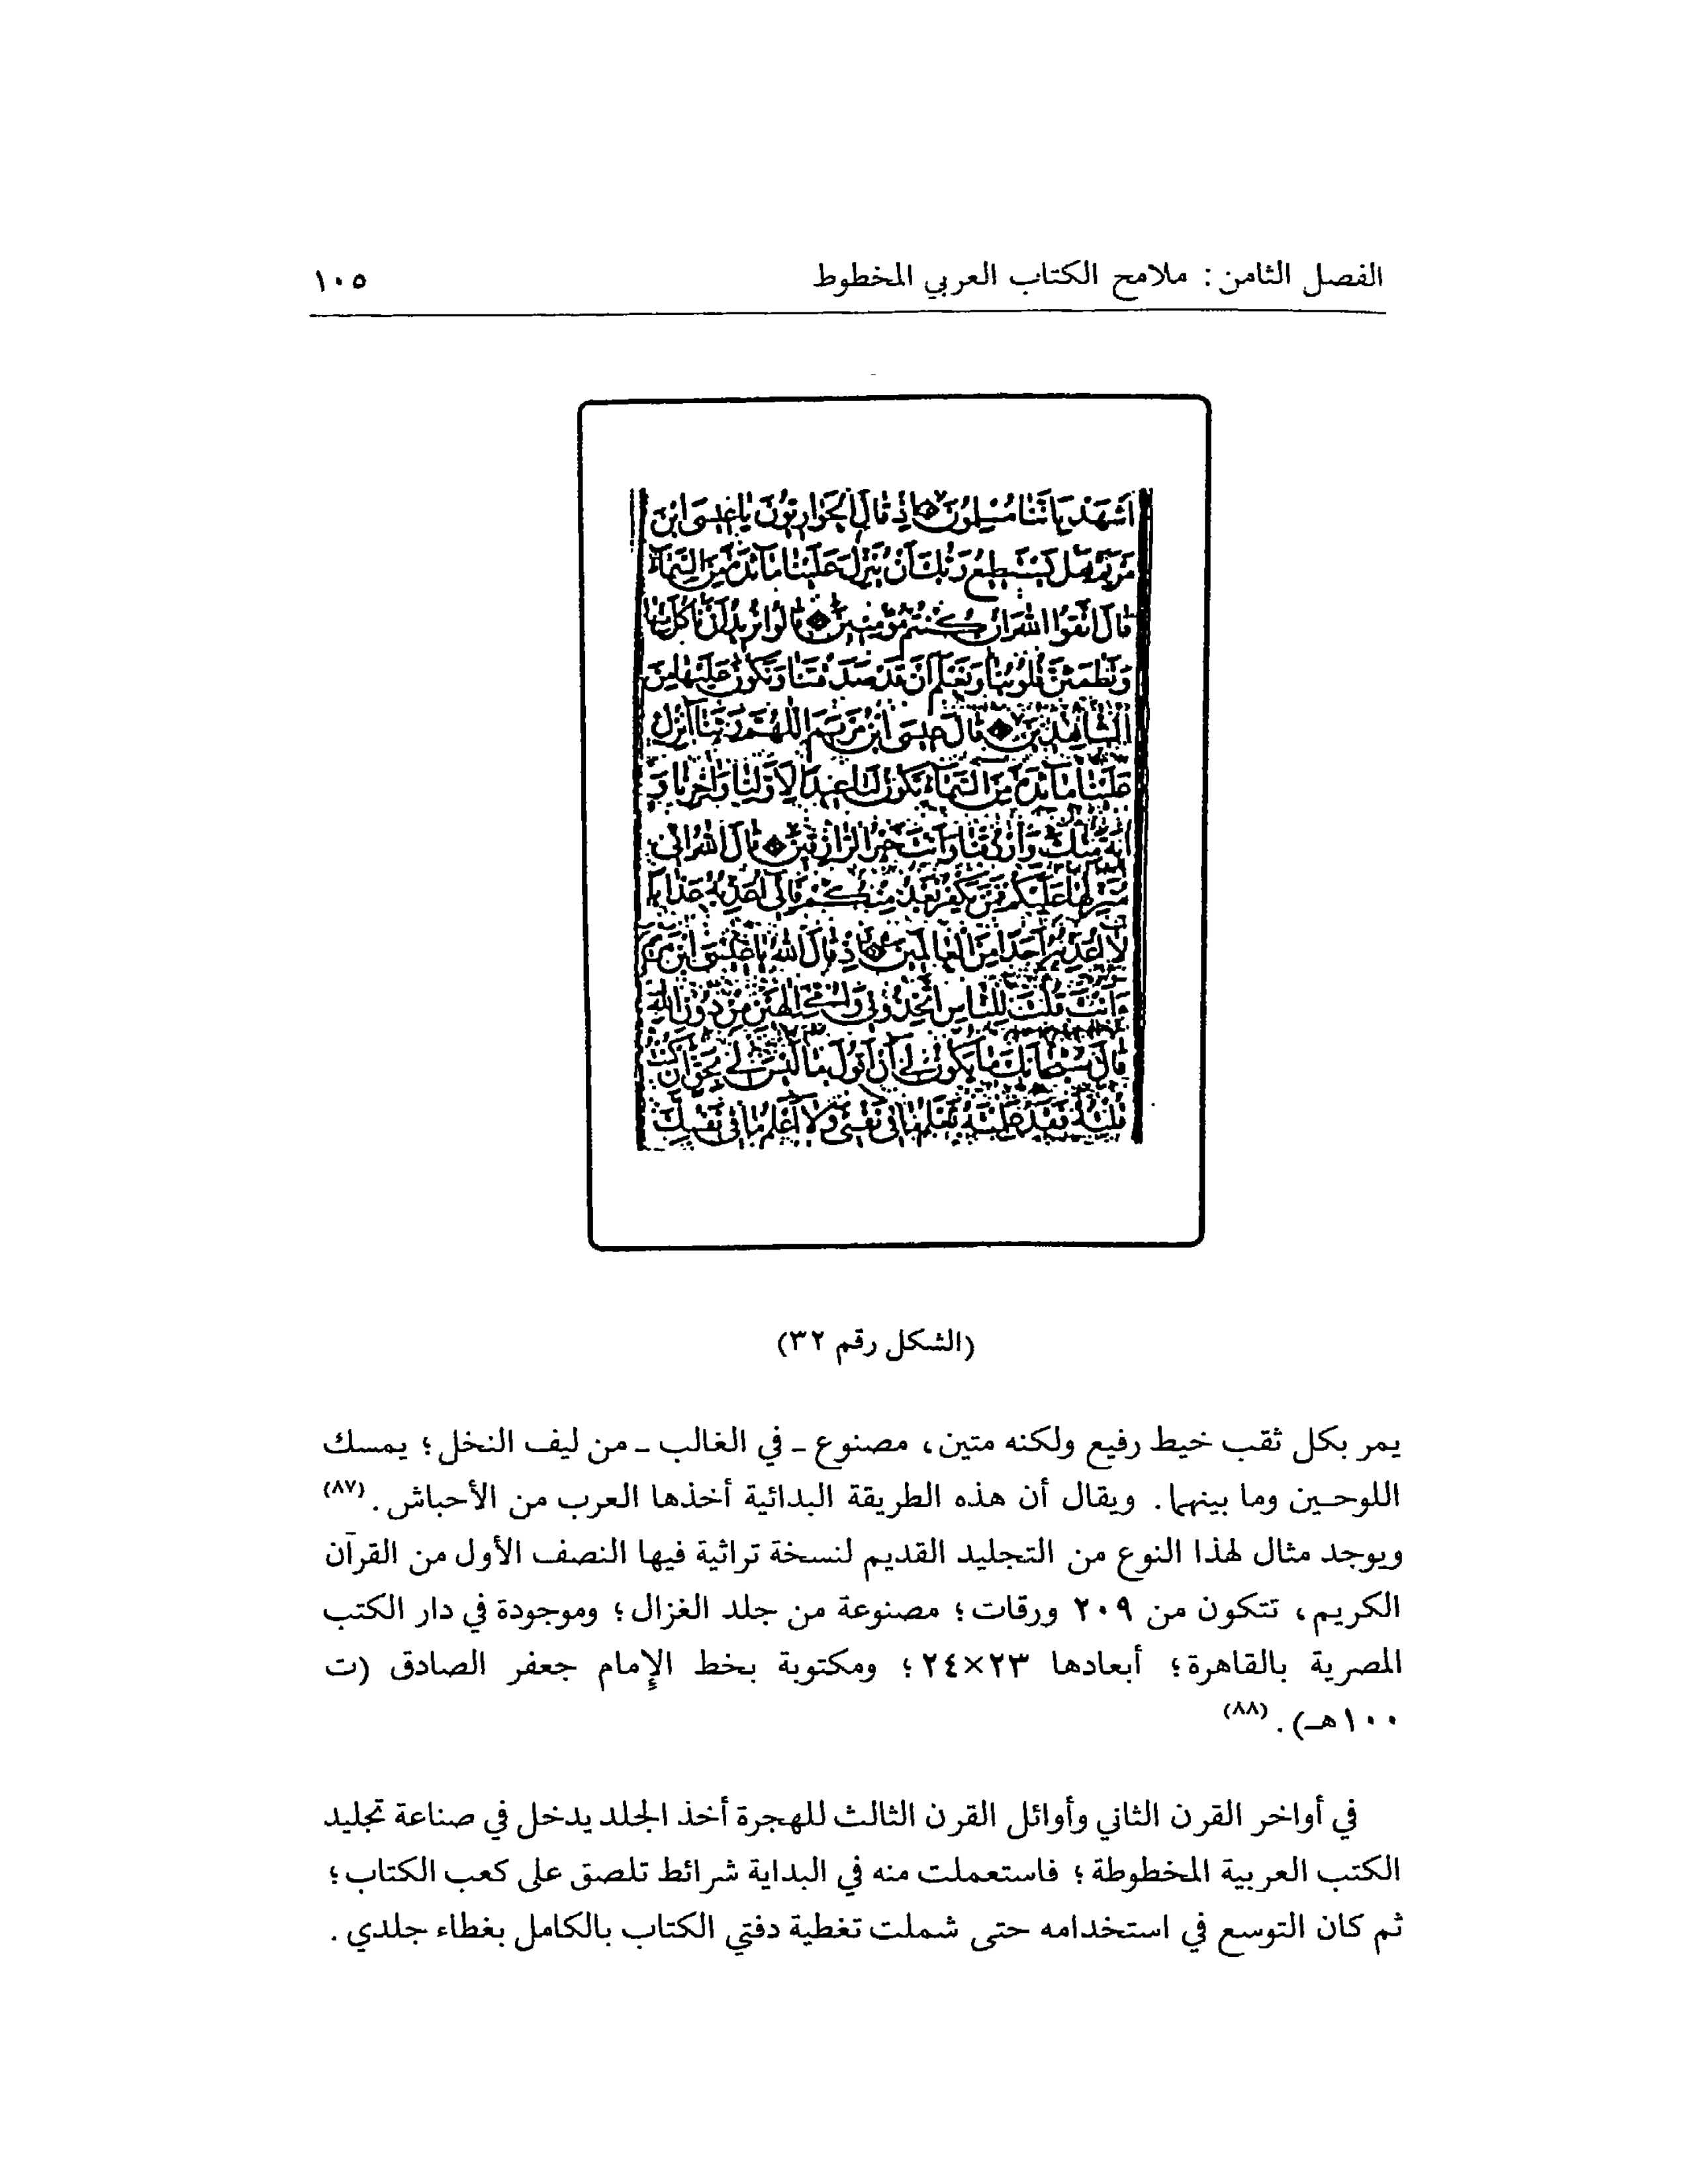 الفصل الثامن : ملامح الكتاب العربي المخطوط ١٠٥
اشهد باننا مسلمون اذ قال الحواريون يا عيسى ابن
مريم هل يستطيع ربك ان ينزل علينا مائدة من السماء
قال اتقوا الله ان كنتم مؤمنين قالوا نريد ان ناكل منها
وتطمئن قلوبنا ونعلم ان قد صدقتنا ونكون عليها من
الشاهدين قال عيسى ابن مريم اللهم ربنا انزل
علينا مائدة من السماء تكون لنا عيدا لاولنا واخرنا و
اية منك وارزقنا وانت خير الرازقين قال الله اني
منزلها عليكم فمن يكفر بعد منكم فاني اعذبه عذابا
لا اعذبه احدا من العالمين اذ قال الله يا عيسى ابن مريم
ءانت قلت للناس اتخذوني وامي الهين من دون الله
قال سبحانك ما يكون لي ان اقول ما ليس لي بحق ان كنت
قلته فقد علمته تعلم ما في نفسي ولا اعلم ما في نفسك
(الشكل رقم ٣٢)
يمر بكل ثقب خيط رفيع ولكنه متين، مصنوع ـ في الغالب ـ من ليف النخل؛ يمسك
اللوحين وما بينهما. ويقال أن هذه الطريقة البدائية أخذها العرب من الأحباش. (٨٧)
ويوجد مثال لهذا النوع من التجليد القديم لنسخة تراثية فيها النصف الأول من القرآن
الكريم، تتكون من ٢٠٩ ورقات؛ مصنوعة من جلد الغزال؛ وموجودة في دار الكتب
المصرية بالقاهرة؛ أبعادها ٢٣×٢٤؛ ومكتوبة بخط الإمام جعفر الصادق (ت
١٠٠هـ). (٨٨)
في أواخر القرن الثاني وأوائل القرن الثالث للهجرة أخذ الجلد يدخل في صناعة تجليد
الكتب العربية المخطوطة؛ فاستعملت منه في البداية شرائط تلصق على كعب الكتاب؛
ثم كان التوسع في استخدامه حتى شملت تغطية دفتي الكتاب بالكامل بغطاء جلدي.